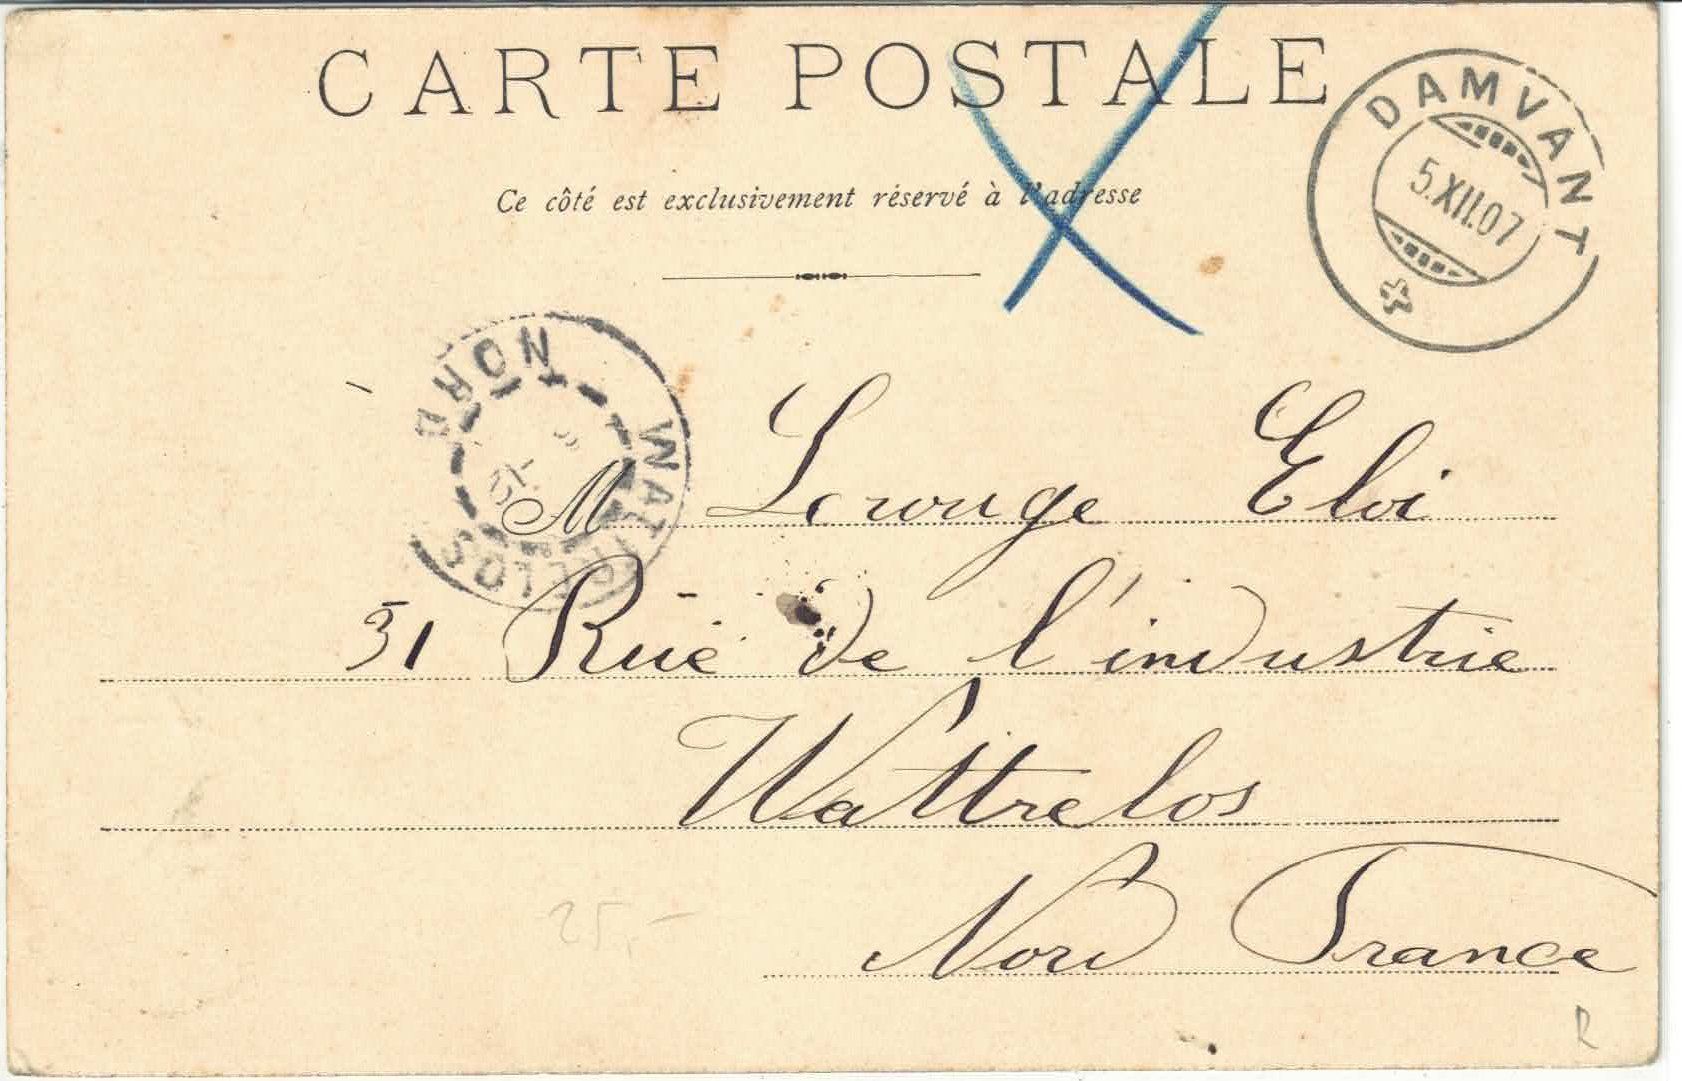 CARTE POSTALE
DAMVANT
5.XII.07
Ce côté est exclusivement réservé à l'adresse
WATTRELOS
NORD
M Lerouge Eloi
31 Rue de l'industrie
Wattrelos
Nord France
25,-
R